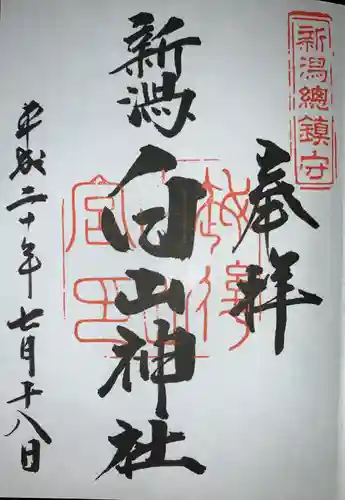 新潟總鎮守
奉拝
新潟白山神社
平成二十年七月十八日